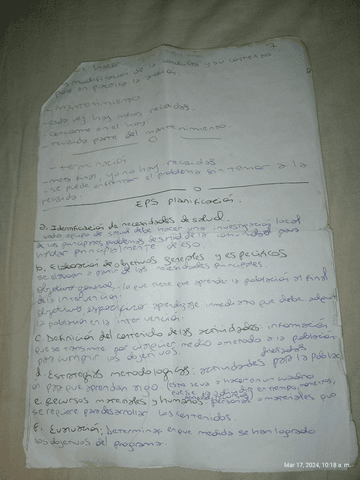 modificación de la conducta y su contexto
para en práctica la acción.
- mantenimiento
- cada vez hay menos recaídas.
- centrarme en el hoy.
- recaída parte del mantenimiento
- terminación
- meta final, ya no hay recaídas
- se puede enfrentar el problema sin temor a la
recaída
EPS planificación.
a. Identificación de necesidades de salud.
cada equipo de salud debe hacer una investigación local
de los principales problemas de salud de la comunidad para
b. Elaboración de objetivos generales y específicos
se elaboran a partir de las necesidades principales.
objetivo general: lo que tiene que aprender la población al final
de la intervención.
objetivos específicos: aprendizaje inmediato que debe adquirir
la población en la intervención.
c. Definición del contenido de las actividades: información
que se transmite por cualquier medio o metodo a la población
para cumplir los objetivos.
d. Estrategias metodologicas: actividades para la población
para que aprendan algo
e. Recursos materiales y humanos: personal o materiales que
se requiere para desarrollar los contenidos.
f. Evaluación: Determinar en que medida se han logrado
los objetivos del programa.
Mar 17, 2024, 10:18 a. m.